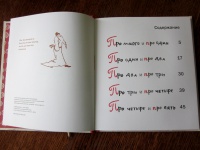 Содержание
Про много и про один 5
Про один и про два 17
Про два и про три 30
Про три и про четыре 39
Про четыре и про пять 45